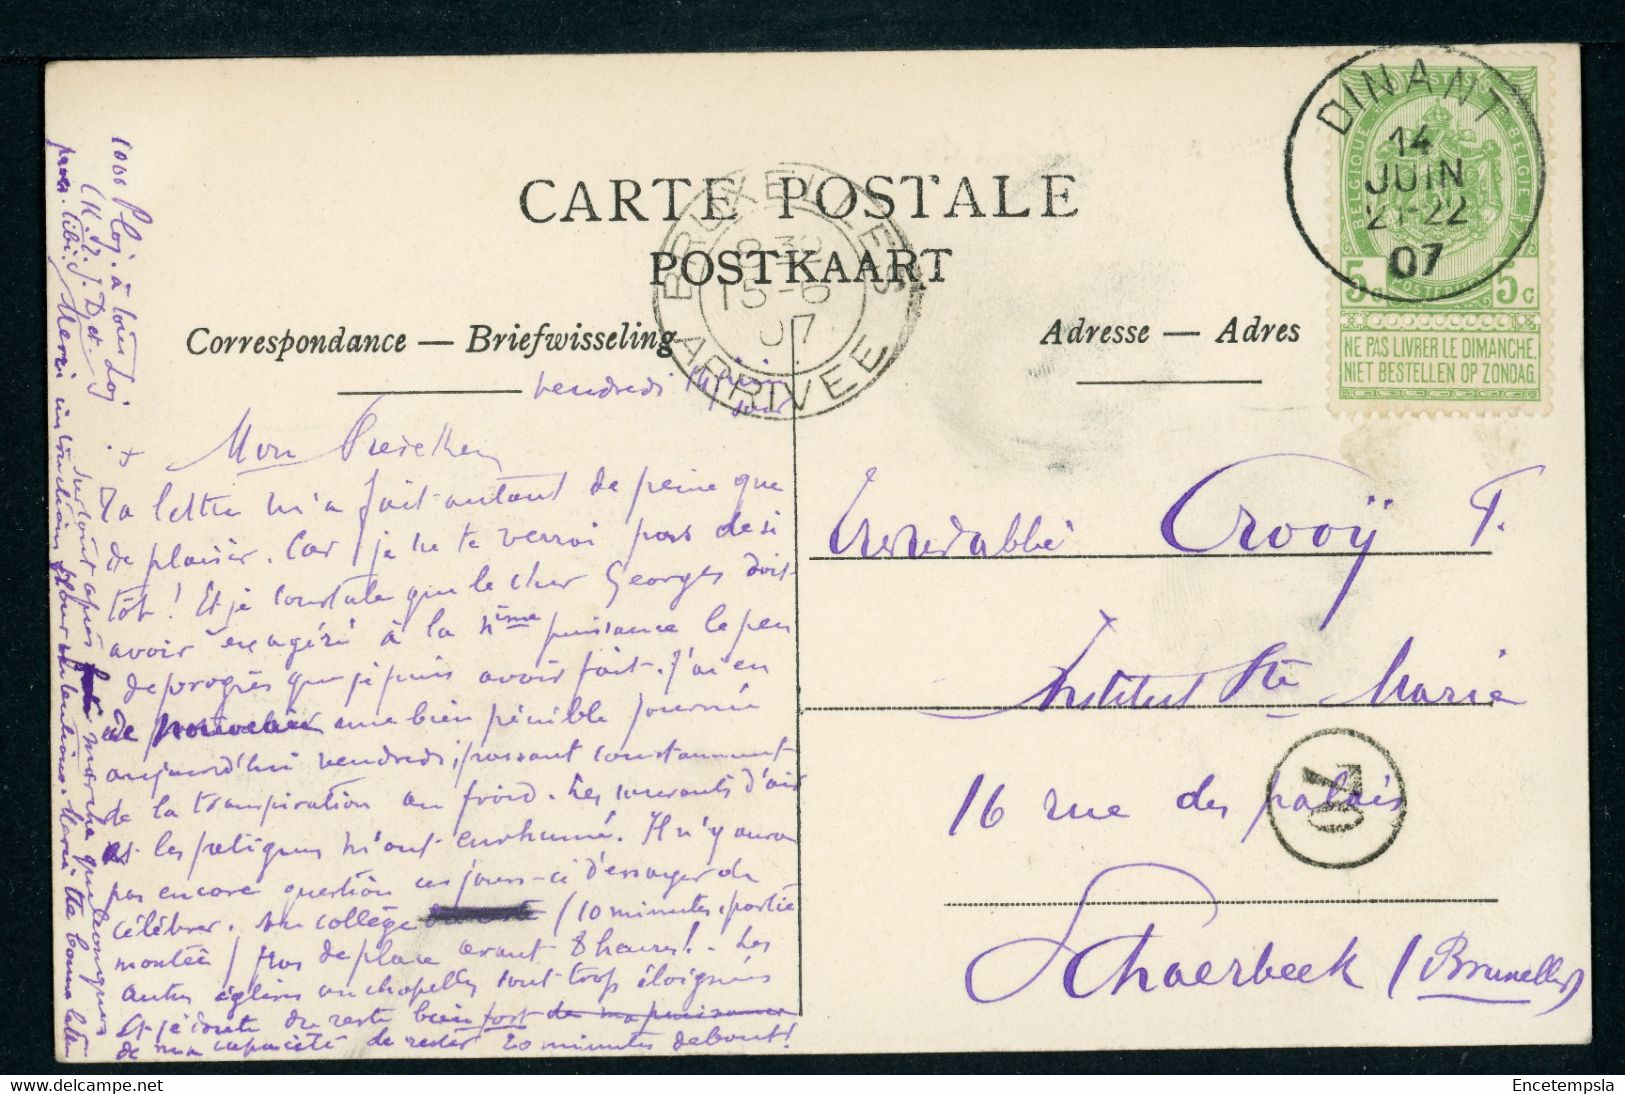 CARTE POSTALE
POSTKAART
Correspondance — Briefwisseling
Adresse — Adres
DINANT
14
JUIN
21-22
07
BELGIQUE POSTES BELGIE POSTERIJEN
5c 5c
NE PAS LIVRER LE DIMANCHE.
NIET BESTELLEN OP ZONDAG.
BRUXELLES
15-6
07
ARRIVEE
vendredi 14 juin
soir
Mon
Ta lettre m'a fait autant de peine que
de plaisir. Car je ne te verrai pas de si
tôt! Et je constate que le cher Georges doit
avoir exagéré à la nième puissance le peu
de progrès que je puis avoir fait. J'ai eu
de nouveau une bien pénible journée
aujourd'hui vendredi, passant constamment
de la transpiration au froid. Les courants d'air
et les fatigues m'ont enrhumé. Il n'y aura
pas encore question ces jours-ci d'essayer de
célébrer. Au collège (10 minutes, partie
montée) pas de place avant 8 heures! Les
autres églises ou chapelles sont trop éloignées
Et je doute du reste bien fort de ma puissance
de ma capacité de rester 20 minutes debout!
1000 à tous
Merci intentions
surtout après
Abbé Crooÿ F.
Institut Ste Marie
16 rue des palais
Schaerbeek (Bruxelles)
70
Encetempsla